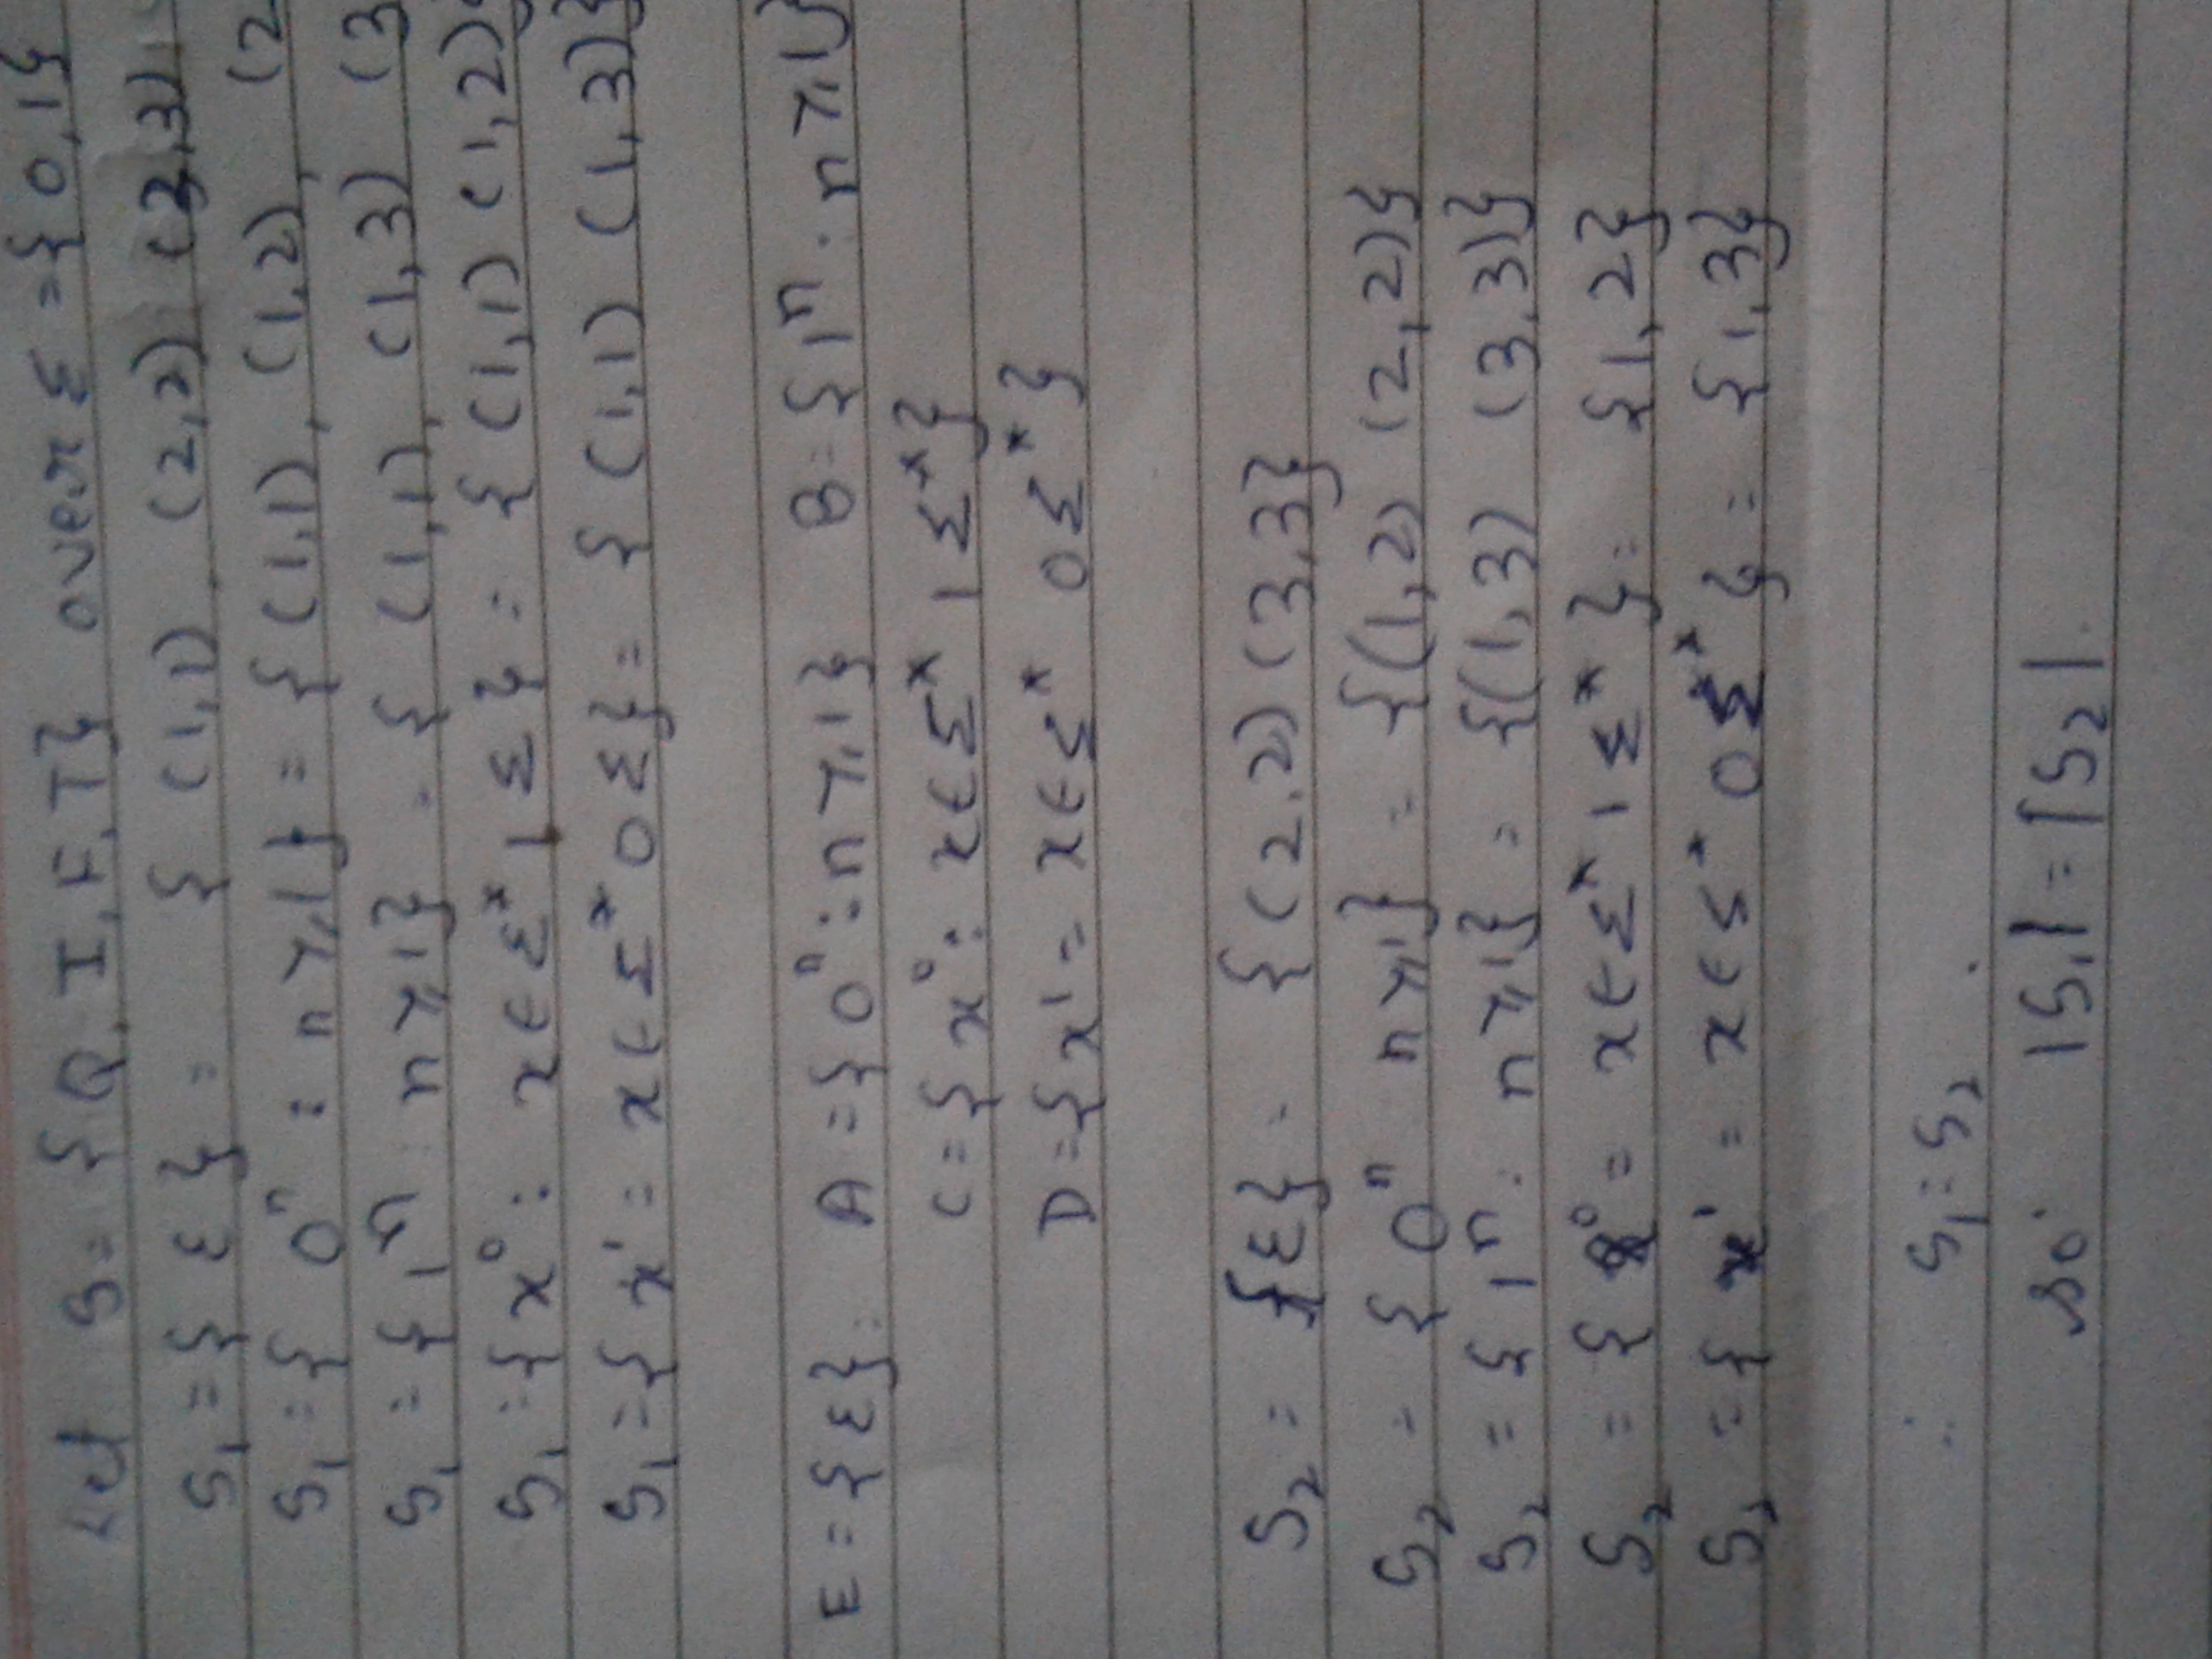 Let S = {Q, I, F, T} over Σ = {0,1}
S₁ = { ε } = { (1,1), (2,2) (3,3)
S₁ = { 0ⁿ : n ≥ 1} = { (1,1), (1,2), (2
S₁ = { 1ⁿ n ≥ 1} = { (1,1), (1,3) (3
S₁ = { x⁰ : x ∈ Σ* 1 Σ } = { (1,1) (1,2)}
S₁ = { x¹ = x ∈ Σ* 0 Σ} = { (1,1) (1,3)}
E = {ε}. A = {0ⁿ : n ≥ 1} B = {1ⁿ : n ≥ 1}
C = { x⁰ : x ∈ Σ* 1 Σ*}
D = { x¹ = x ∈ Σ* 0 Σ*}
S₂ = {ε} = {(2,2) (3,3}
S₂ = { 0ⁿ n ≥ 1} = {(1,2) (2,2)}
S₂ = { 1ⁿ : n ≥ 1} = {(1,3) (3,3)}
S₂ = { x⁰ = x ∈ Σ* 1 Σ* } = {1,2}
S₂ = { x¹ = x ∈ Σ* 0 Σ* } = {1,3}
∴ S₁ = S₂ .
so |S₁| = |S₂|.